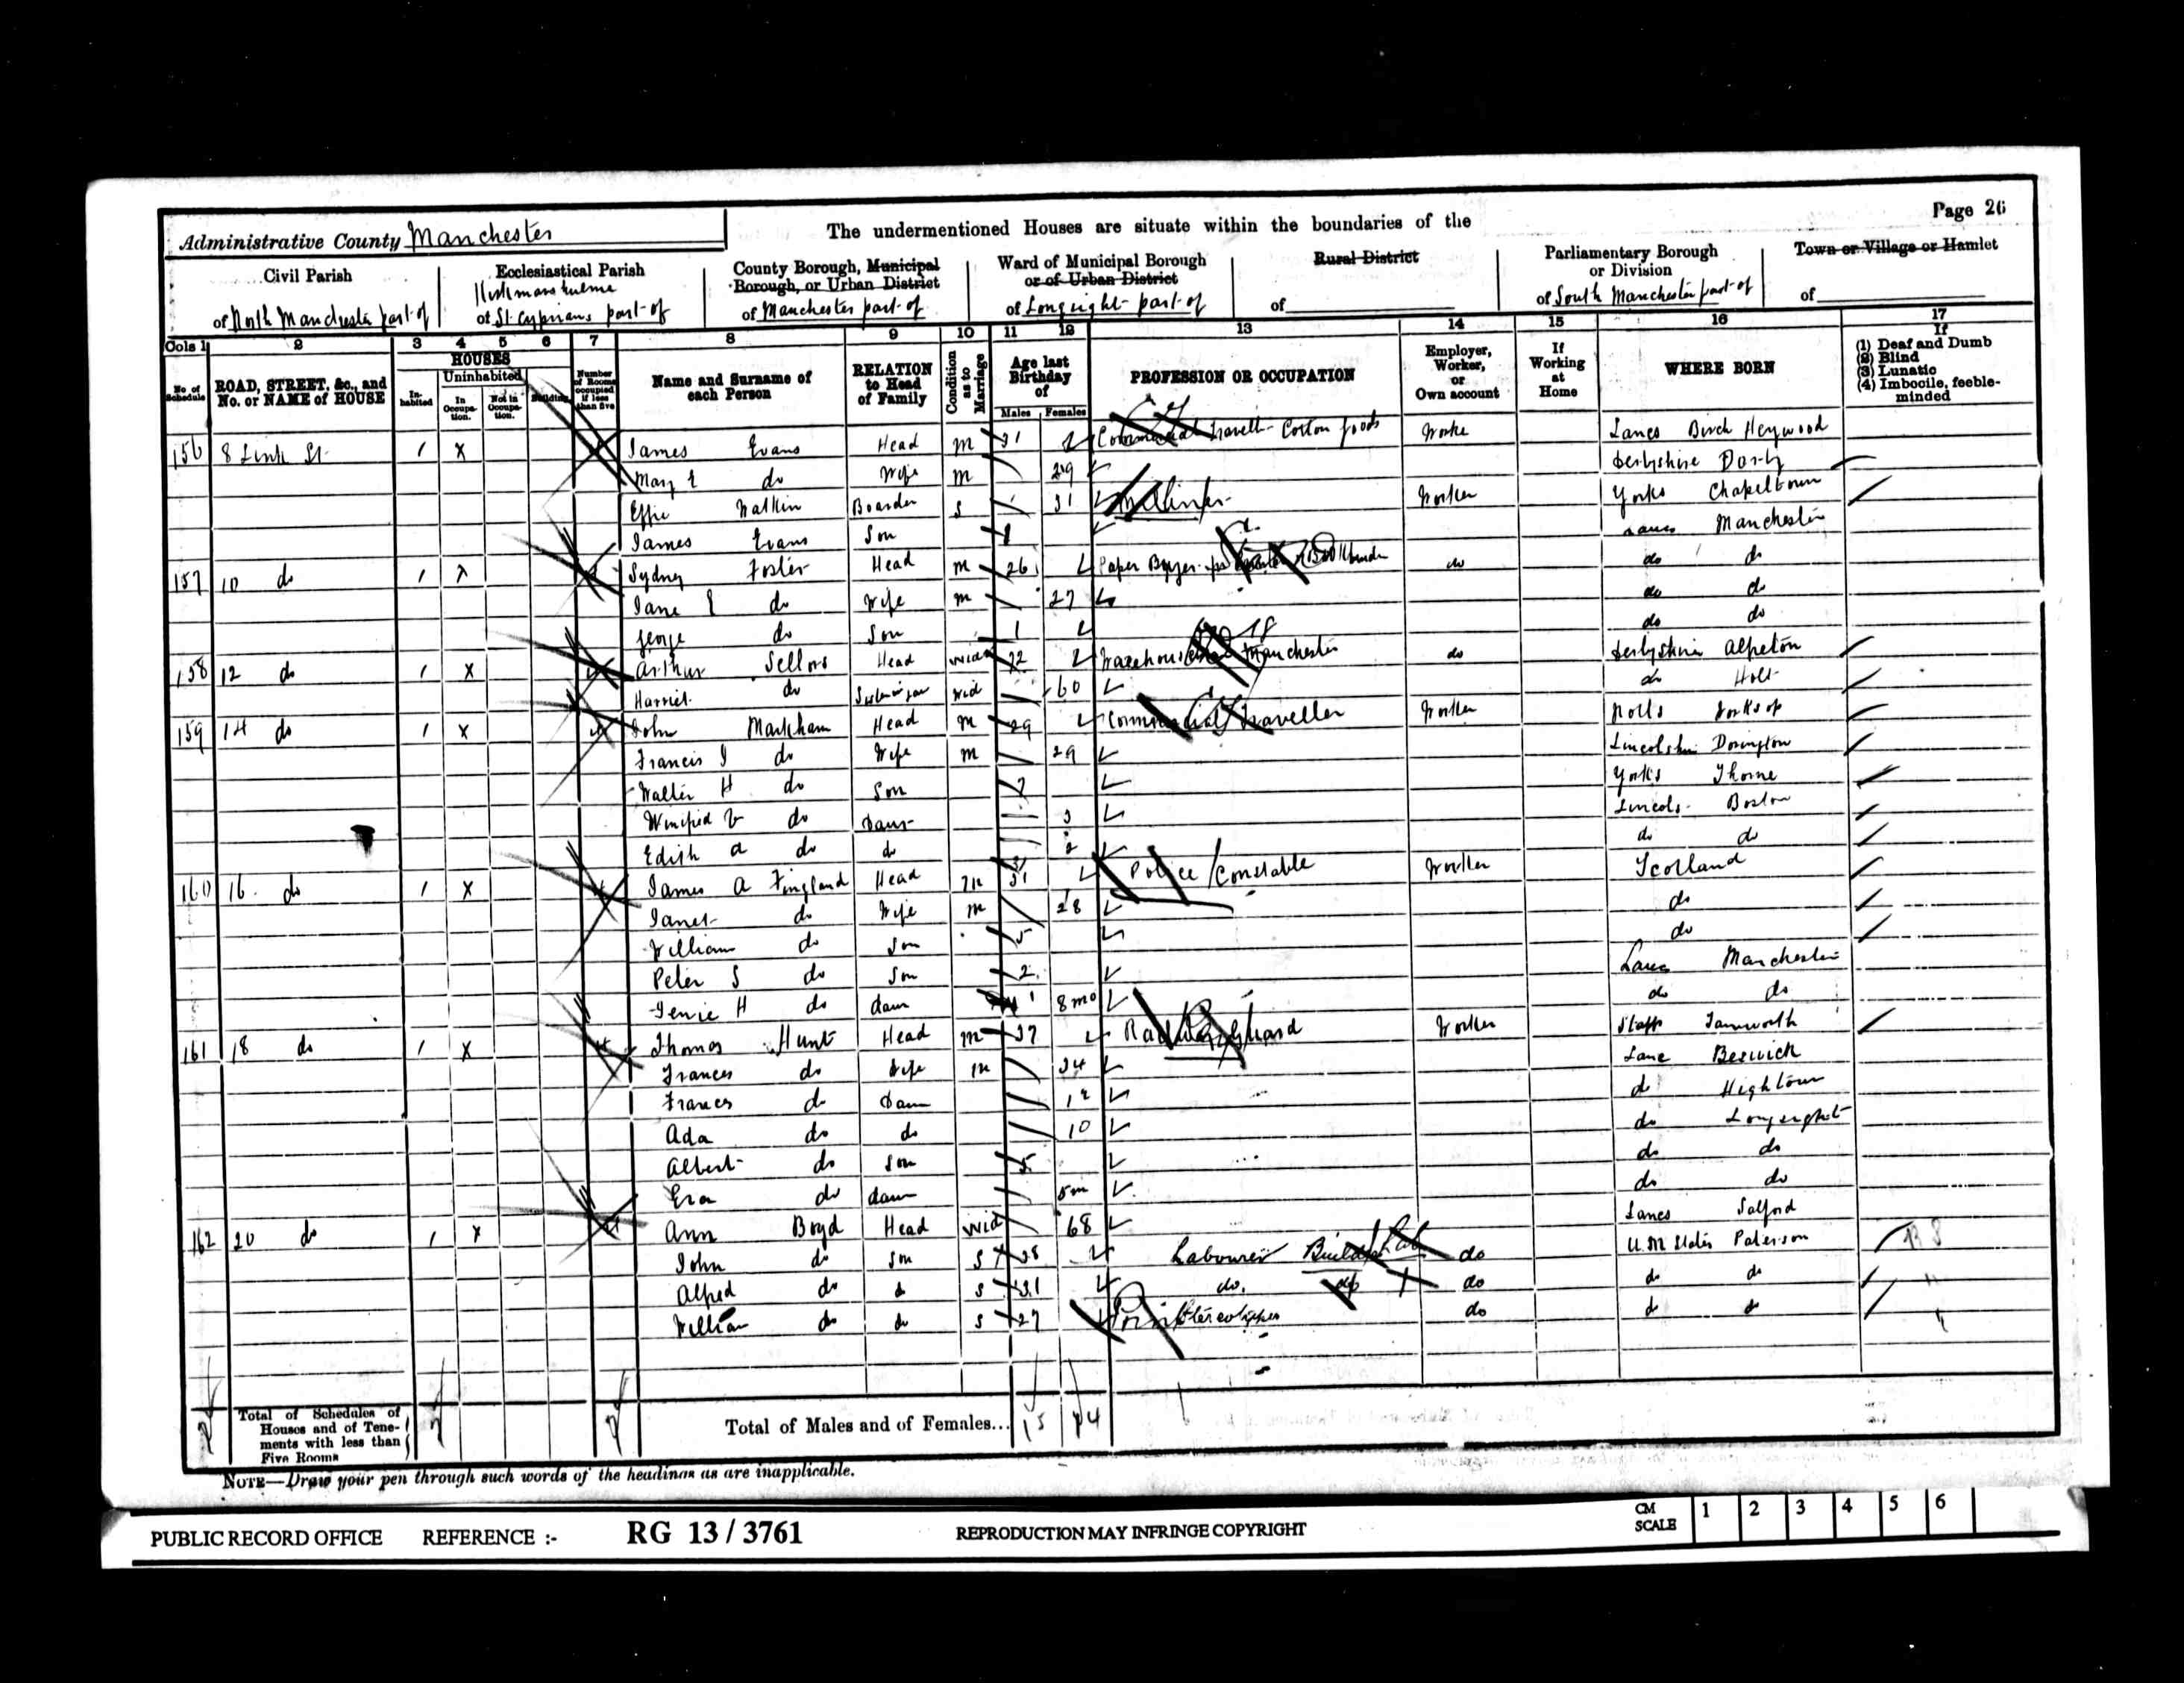 Page 26
Administrative County Manchester
The undermentioned Houses are situate within the boundaries of the
Civil Parish
of North Manchester part of
Ecclesiastical Parish
of St. Cyprians part of
County Borough, Municipal
Borough, or Urban District
of Manchester part of
Ward of Municipal Borough
or of Urban District
of Longsight part of
Rural District
of
Parliamentary Borough
or Division
of South Manchester part of
Town or Village or Hamlet
of
Cols 1 2 3 4 5 6 7 8 9 10 11 12 13 14 15 16 17
No. of Schedule
ROAD, STREET, &c., and
No. or NAME of HOUSE
HOUSES
In-habited
Uninhabited
In Occupa-tion.
Not in Occupa-tion.
Building
Number of Rooms occupied if less than five
Name and Surname of
each Person
RELATION
to Head
of Family
Condition as to Marriage
Age last
Birthday
of
Males Females
PROFESSION OR OCCUPATION
Employer,
Worker,
or
Own account
If
Working
at
Home
WHERE BORN
If
(1) Deaf and Dumb
(2) Blind
(3) Lunatic
(4) Imbecile, feeble-
minded
156 8 Link St 1 X James Evans Head m 31 Cotton goods Worke Lancs Birch Heywood
Mary E do Wife m 29 Derbyshire
Effie Watkin Boarder S 31 Worker Yorks Chapeltown
James Evans Son Lancs Manchester
157 10 do 1 X Sydney Foster Head m 26 do do do
Jane E do Wife m 27 do do
George do Son 1 do do
158 12 do 1 X Arthur Sellors Head Manchester do Derbyshire Alfreton
Harriet do Wid 60 do Holt
159 14 do 1 X John Markham Head m 29 Commercial Traveller Worker Notts Worksop
Francis J do Wife m 29 Lincolnshire
Walter H do Son 7 Yorks Thorne
Winifred do Daur 3 Lincoln Boston
Edith A do do 2 do do
160 16 do 1 X James A Head m 31 Police Constable Worker Scotland
Janet do Wife m 28 do
William do Son 5 do
Peter S do Son 2 Lancs Manchester
H do daur 8mo do do
161 18 do 1 X Thomas Hunt Head m 37 Railway Guard Worker Staffs Tamworth
Frances do Wife m 34 Lanc Beswick
Frances do Daur 12 do Hightown
Ada do do 10 do Longsight
Albert do Son 5 do do
Eva do daur 5m do do
162 20 do 1 X Ann Boyd Head Wid 68 Lancs Salford
John do Son S 38 Labourer do Paterson
Alfred do do S 31 do. do do do do
William do do S 27 do do do
Total of Schedules of
Houses and of Tene-
ments with less than
Five Rooms
7
Total of Males and of Females... 15 14
NOTE—Draw your pen through such words of the headings as are inapplicable.
PUBLIC RECORD OFFICE REFERENCE :- RG 13 / 3761 REPRODUCTION MAY INFRINGE COPYRIGHT
CM
SCALE 1 2 3 4 5 6